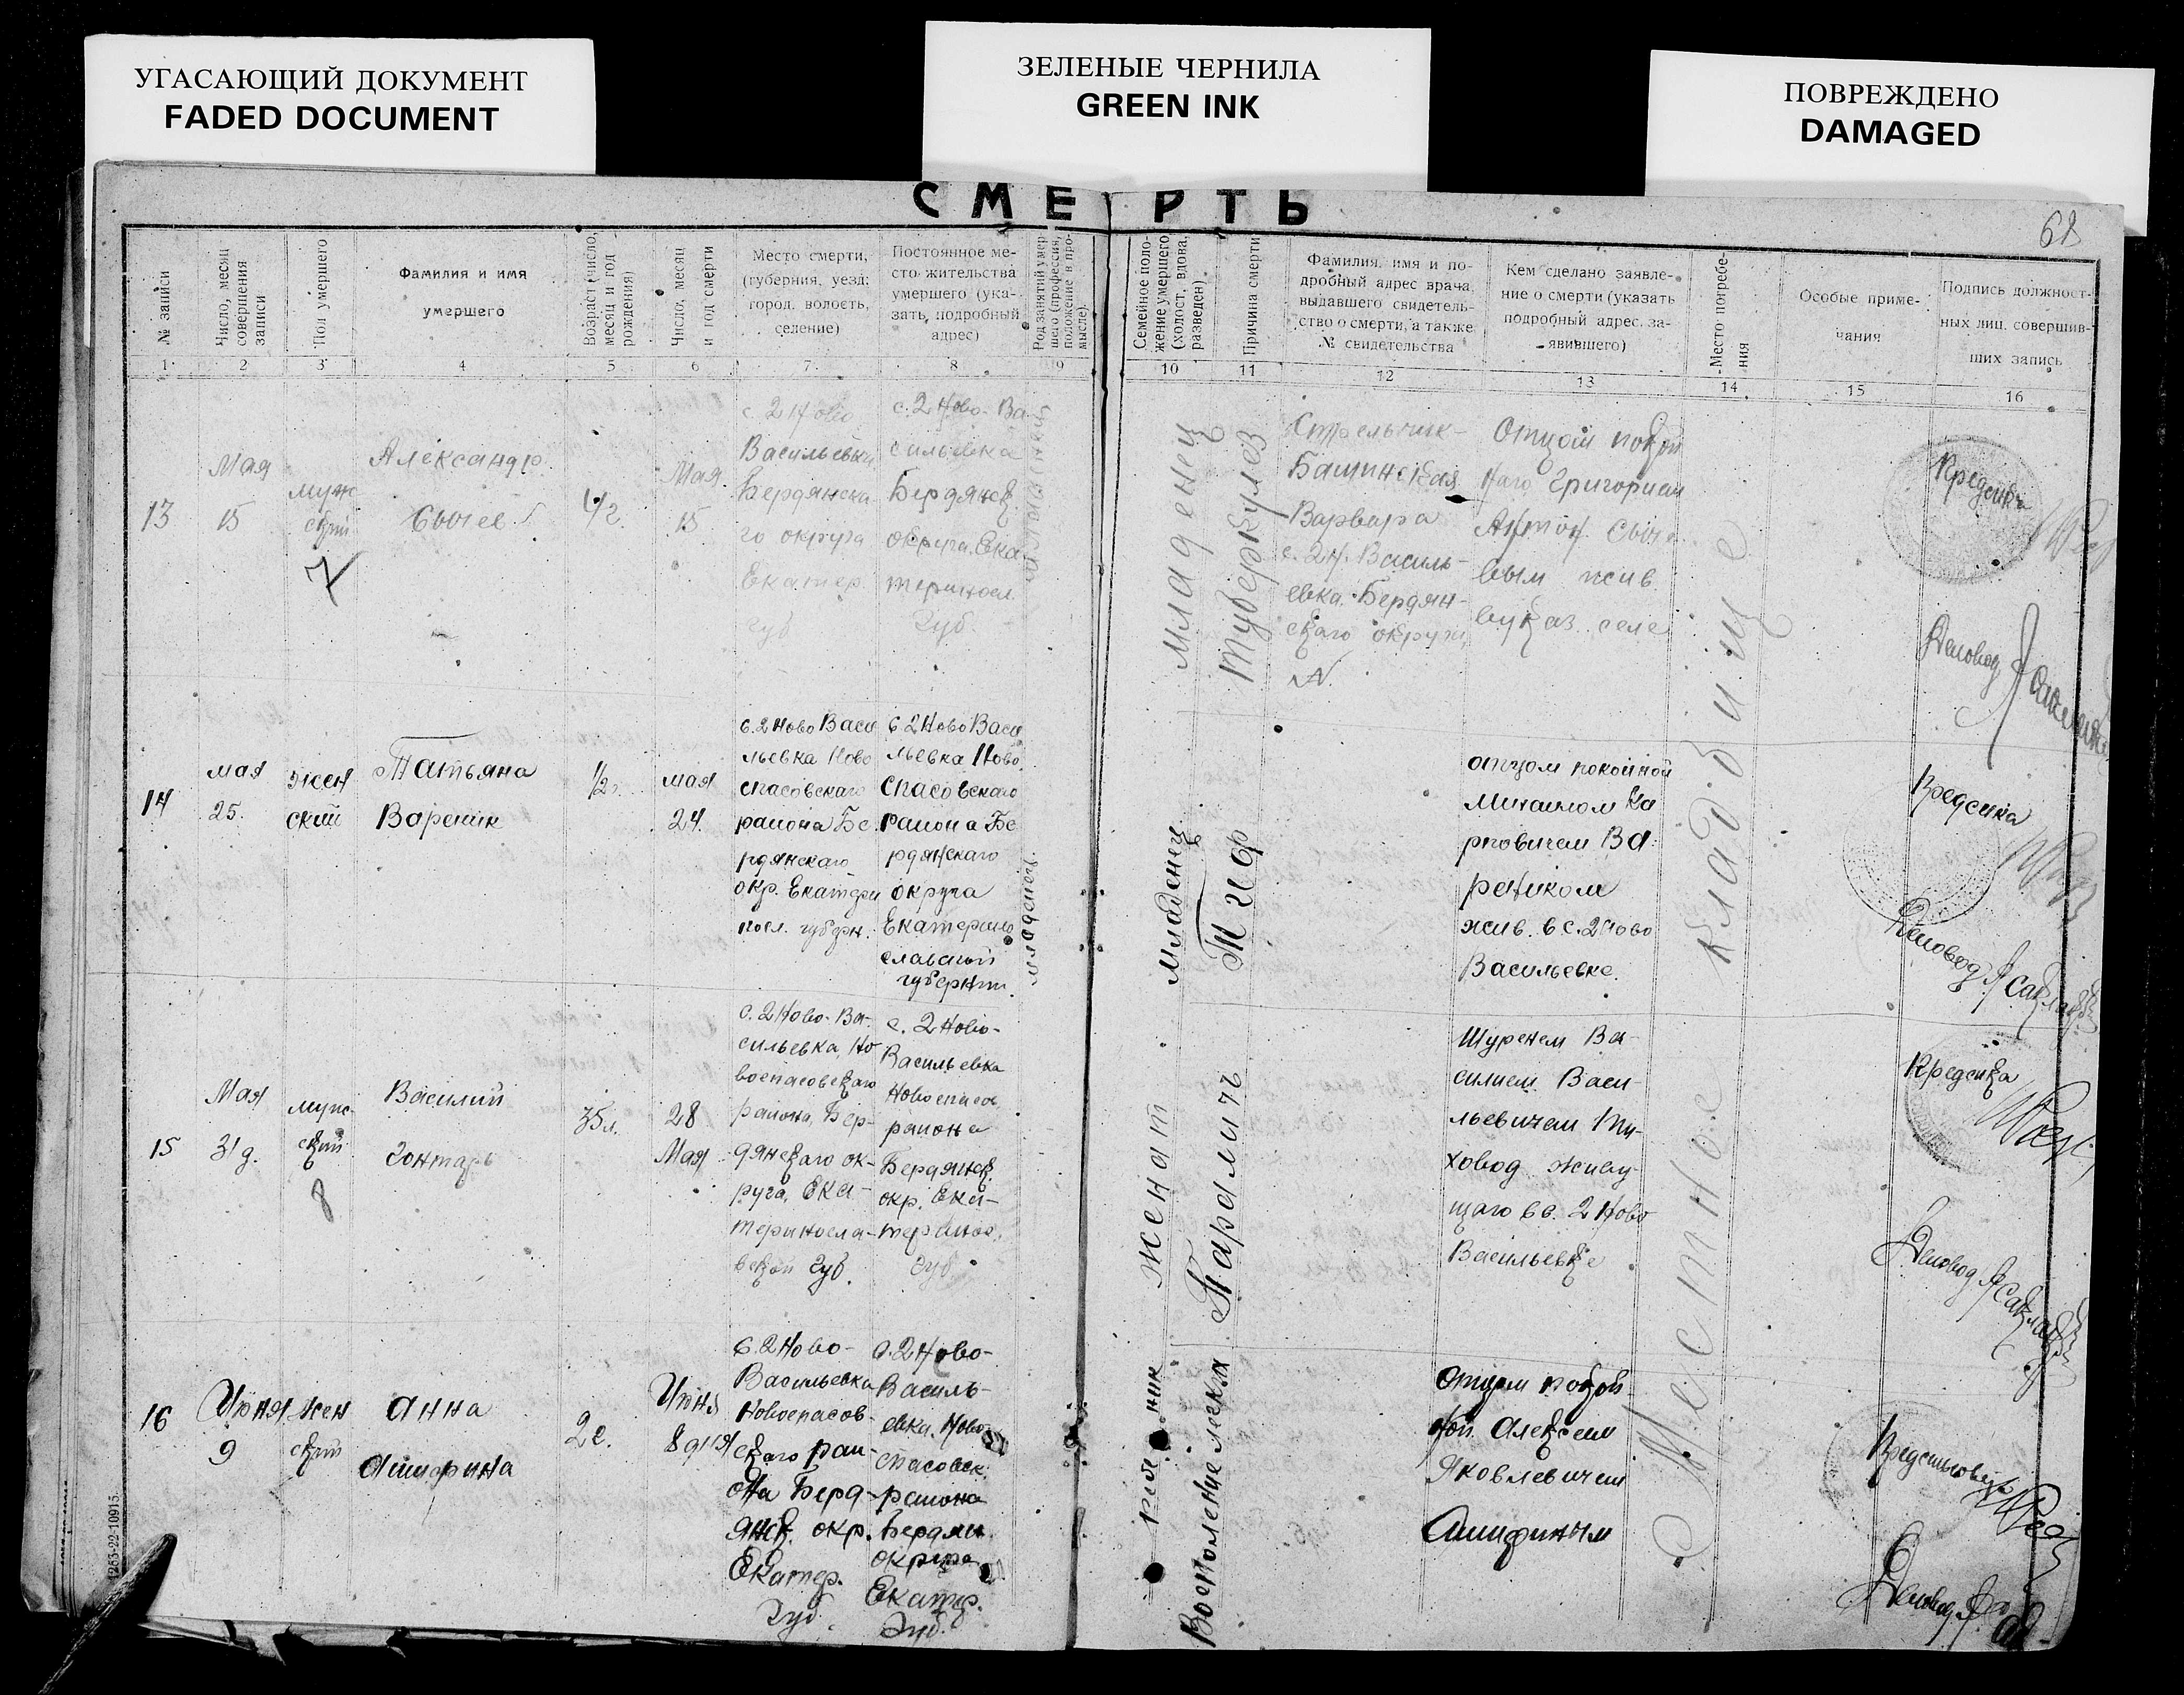 УГАСАЮЩИЙ ДОКУМЕНТ
FADED DOCUMENT
ЗЕЛЕНЫЕ ЧЕРНИЛА
GREEN INK
ПОВРЕЖДЕНО
DAMAGED
СМЕРТЬ
68
№ записи
Число, месяц
совершения
записи
Пол умершего
Фамилия и имя
умершего
Возраст (число,
месяц и год
рождения)
Число, месяц
и год смерти
Место смерти,
(губерния, уезд,
город, волость,
селение)
Постоянное ме-
сто жительства
умершего (ука-
зать, подробный
адрес)
Род занятий умер-
шего (профессия,
положение в про-
мысле)
Семейное поло-
жение умершего,
(холост, вдова,
разведен)
Причина смерти
Фамилия, имя и по-
дробный адрес врача,
выдавшего свидетель-
ство о смерти, а также
№ свидетельства
Кем сделано заявле-
ние о смерти (указать
подробный адрес за-
явившего)
Место погребе-
ния
Особые приме-
чания
Подпись должност-
ных лиц, совершив-
ших запись
1 2 3 4 5 6 7 8 9 10 11 12 13 14 15 16
13
Мая
15
муж
ский
7
Александр
Сычев
Мая
15
с. 2 Ново
Васильевка
Бердянска
го округа
Екатер.
губ
с. 2 Ново-Ва-
сильевка
Бердянск
округа, Ека-
теринося.
Губ.
младенец
туберкулез
Стрельник-
Башинская
Варвара
с. 2 Н. Василь-
евка. Бердян-
скаго округа,
N.
Отцом покой
наго Григорием
Антон. Сыче
вым жив.
в указ. селе
Предсика
Деловод
14
мая
25.
жен
ский
Татьяна
Вареник
1/2 г.
мая
24.
с. 2 Ново Васи
льевка Ново
спасовскаго
района Бе.
рдянскаго
окр. Екатери
носл. губерн.
с 2 Ново Васи
льевка Ново.
Спасовскаго
района Бе
рдянскаго
округа
Екатерино
славской
губернии.
младенец
младенец
Тиф
отцом покойной
Михаилом Ка
рповичем Ва
реником
жив. в с. 2 Ново
Васильевке.
Предсика
Деловод
15
Мая
31 д.
муж.
ский
8
Василий
Гонтарь
35 л.
28
Мая
с. 2 Ново-Ва-
сильевка, Но
воспасовскаго
района, Бер-
дянскаго ок-
руга, Ека-
теринosла-
вской Губ.
с. 2 Ново-
Васильевка
Новоспасов
района
Бердянск.
окр. Ека-
теринос.
Губ.
женат
Паралич
Шурином Ва-
силием Васи-
льевичем
живу-
щаго в с. 2 Ново
Васильевке
Предсика
Деловод
16
Июня
9
жен
ский
Анна
2 г.
Июня
8 дня
с. 2 Ново-
Васильевка
Новоспасов-
скаго рай-
она Берд-
янск. окр.
Екатер.
Губ.
с. 2 Ново-
Василь-
евка. Ново
спасовск.
района
Бердян.
округа
Екатер.
Губ.
Восполение легких
Отцом покой
ной Алексеем
Яковлевичем
Местное кладбище
Деловод
1253-22-10915